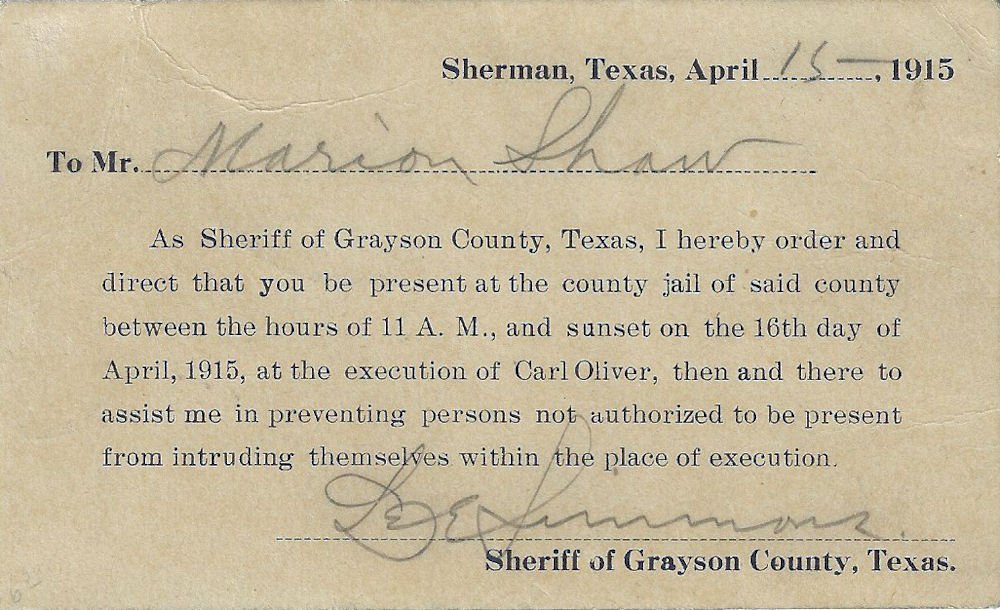 Sherman, Texas, April 15, 1915
To Mr. Marion Shaw
As Sheriff of Grayson County, Texas, I hereby order and
direct that you be present at the county jail of said county
between the hours of 11 A. M., and sunset on the 16th day of
April, 1915, at the execution of Carl Oliver, then and there to
assist me in preventing persons not authorized to be present
from intruding themselves within the place of execution.
Lee Simmons.
Sheriff of Grayson County, Texas.